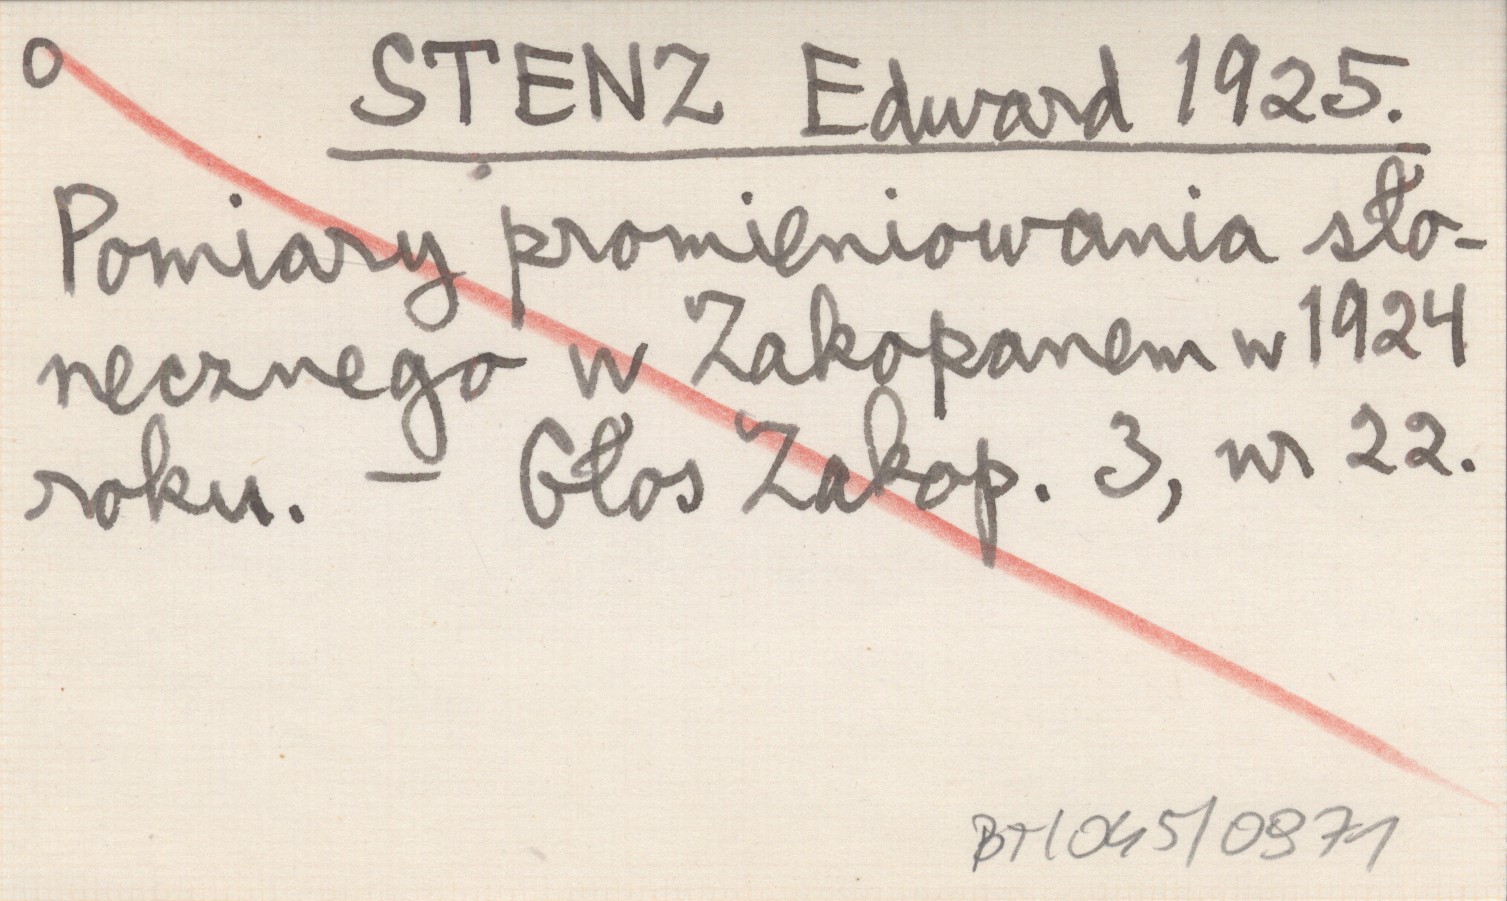 o STENZ Edward 1925.
Pomiary promieniowania sło-
necznego w Zakopanem w 1924
roku. – Głos Zakop. 3, nr 22.
BT/045/0971